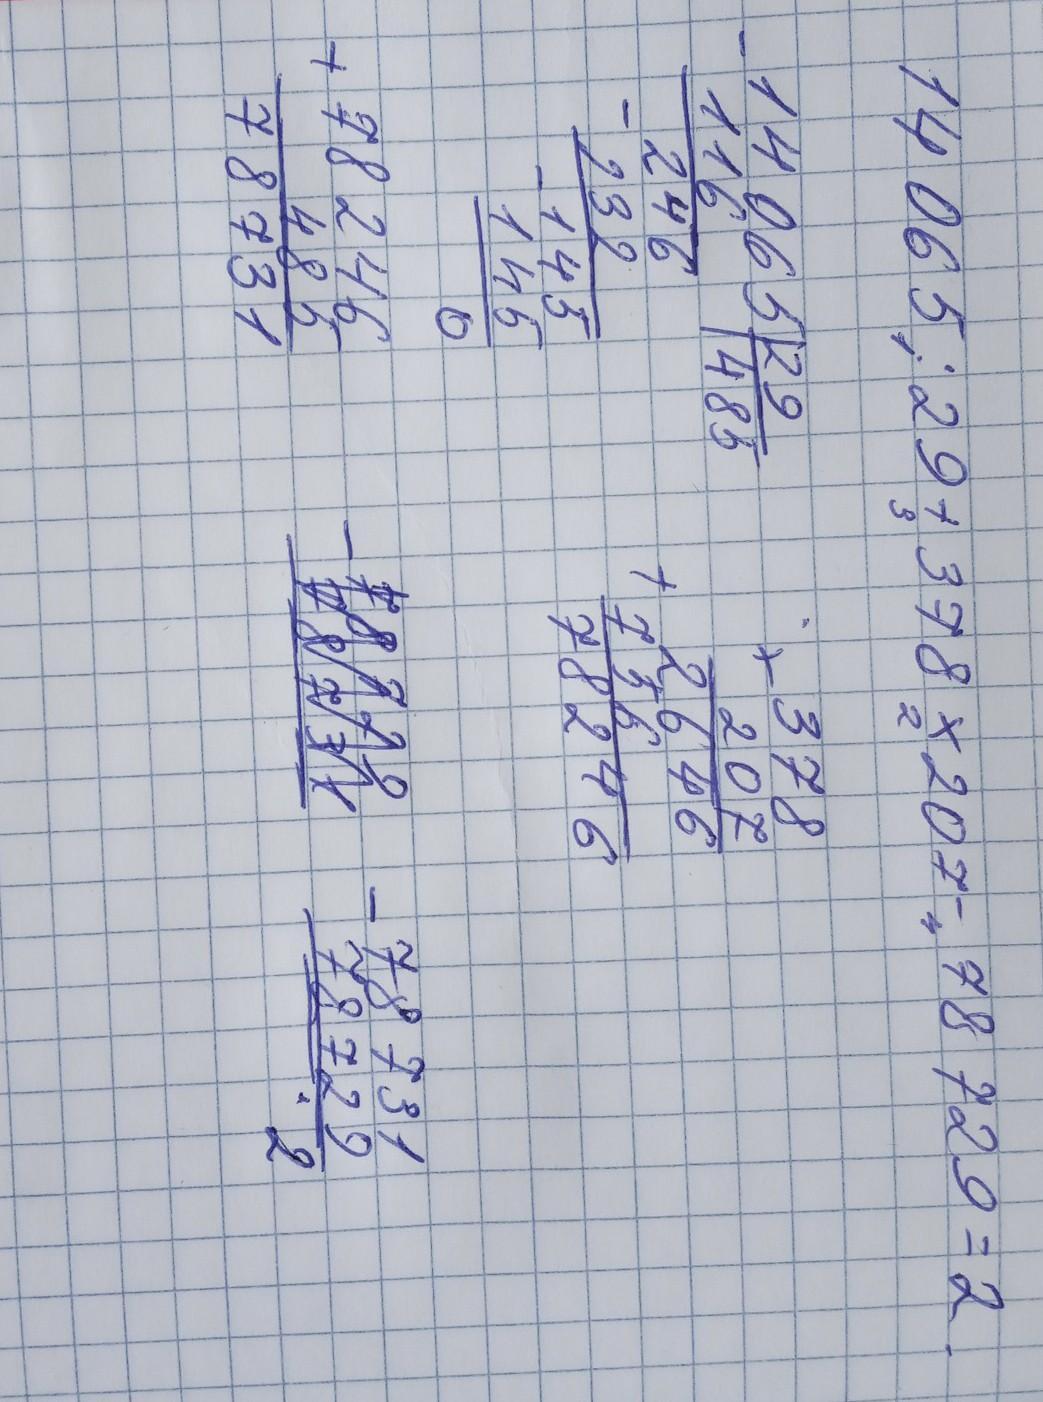 14065:29+378×207-78729=2
1 3 2 4
-14065|29
116 |485
-246
232
-145
145
0
×378
207
2646
+756
78246
+78246
485
78731
-78731
78729
2